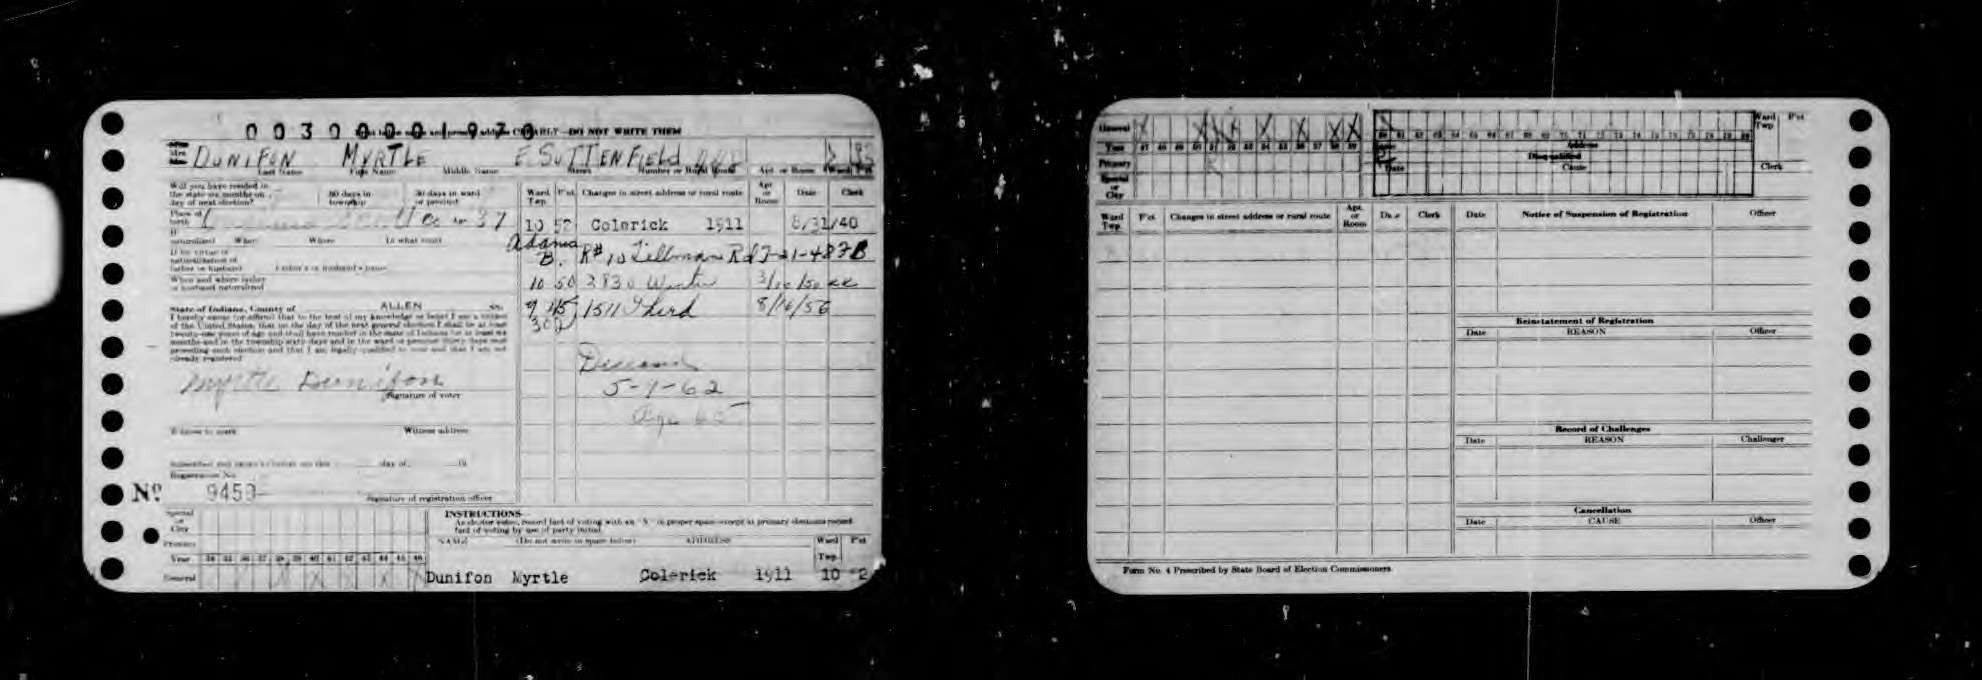 0030001970
DO NOT WRITE THEM
Mrs. DUNIFON MYRTLE E. SUTTENFIELD 448
Last Name First Name Middle Name Street Number or Rural Route Apt. or Room Ward P'ct
Will you have resided in
the state six months on 60 days in 30 days in ward
day of next election? township or precinct
Place of
birth
If
naturalized When Where In what court
If by virtue of
naturalization of
father or husband Father's or husband's name
When and where father
or husband naturalized
State of Indiana, County of ALLEN ss.
I hereby swear (or affirm) that to the best of my knowledge or belief I am a citizen
of the United States, that on the day of the next general election I shall be at least
twenty-one years of age and shall have resided in the state of Indiana for at least six
months and in the township sixty days and in the ward or precinct thirty days next
preceding such election and that I am legally qualified to vote and that I am not
already registered
Myrtle Dunifon
Signature of voter
Witness to mark Witness address
Subscribed and sworn to before me this day of 19
Registration No.
No. 9459
Signature of registration officer
Ward Twp. P'ct. Changes in street address or rural route Apt. or Room Date Clerk
10 52 Colerick 1911 8/31/40
Adams
B. R# 10 Tillman Rd 7-21-48 FB
10 50 3830 Winter 3/10/50
9 1511 Third 8/16/56
302
5-1-62
Age 65
Special
or
City
Primary
Year 34 35 36 37 38 39 40 41 42 43 44 45 46
General X X X
INSTRUCTIONS—
As elector votes, record fact of voting with an "X" in proper space except at primary elections record
fact of voting by use of party initial.
NAME (Do not write in space below) ADDRESS Ward Twp. P'ct
Dunifon Myrtle Colerick 1911 10 2
General X X X X X X X
Year 47 48 49 50 51 52 53 54 55 56 57 58 59
Primary
Special
or
City
60 61 62 63 64 65 66 67 68 69 70 71 72 73 74 75 76 77 78 79 80
Ward Twp. P'ct
Address
Disqualified
Date Cause Clerk
Ward Twp. P'ct. Changes in street address or rural route Apt. or Room Date Clerk
Date Notice of Suspension of Registration Officer
Reinstatement of Registration
Date REASON Officer
Record of Challenges
Date REASON Challenger
Cancellation
Date CAUSE Officer
Form No. 4 Prescribed by State Board of Election Commissioners